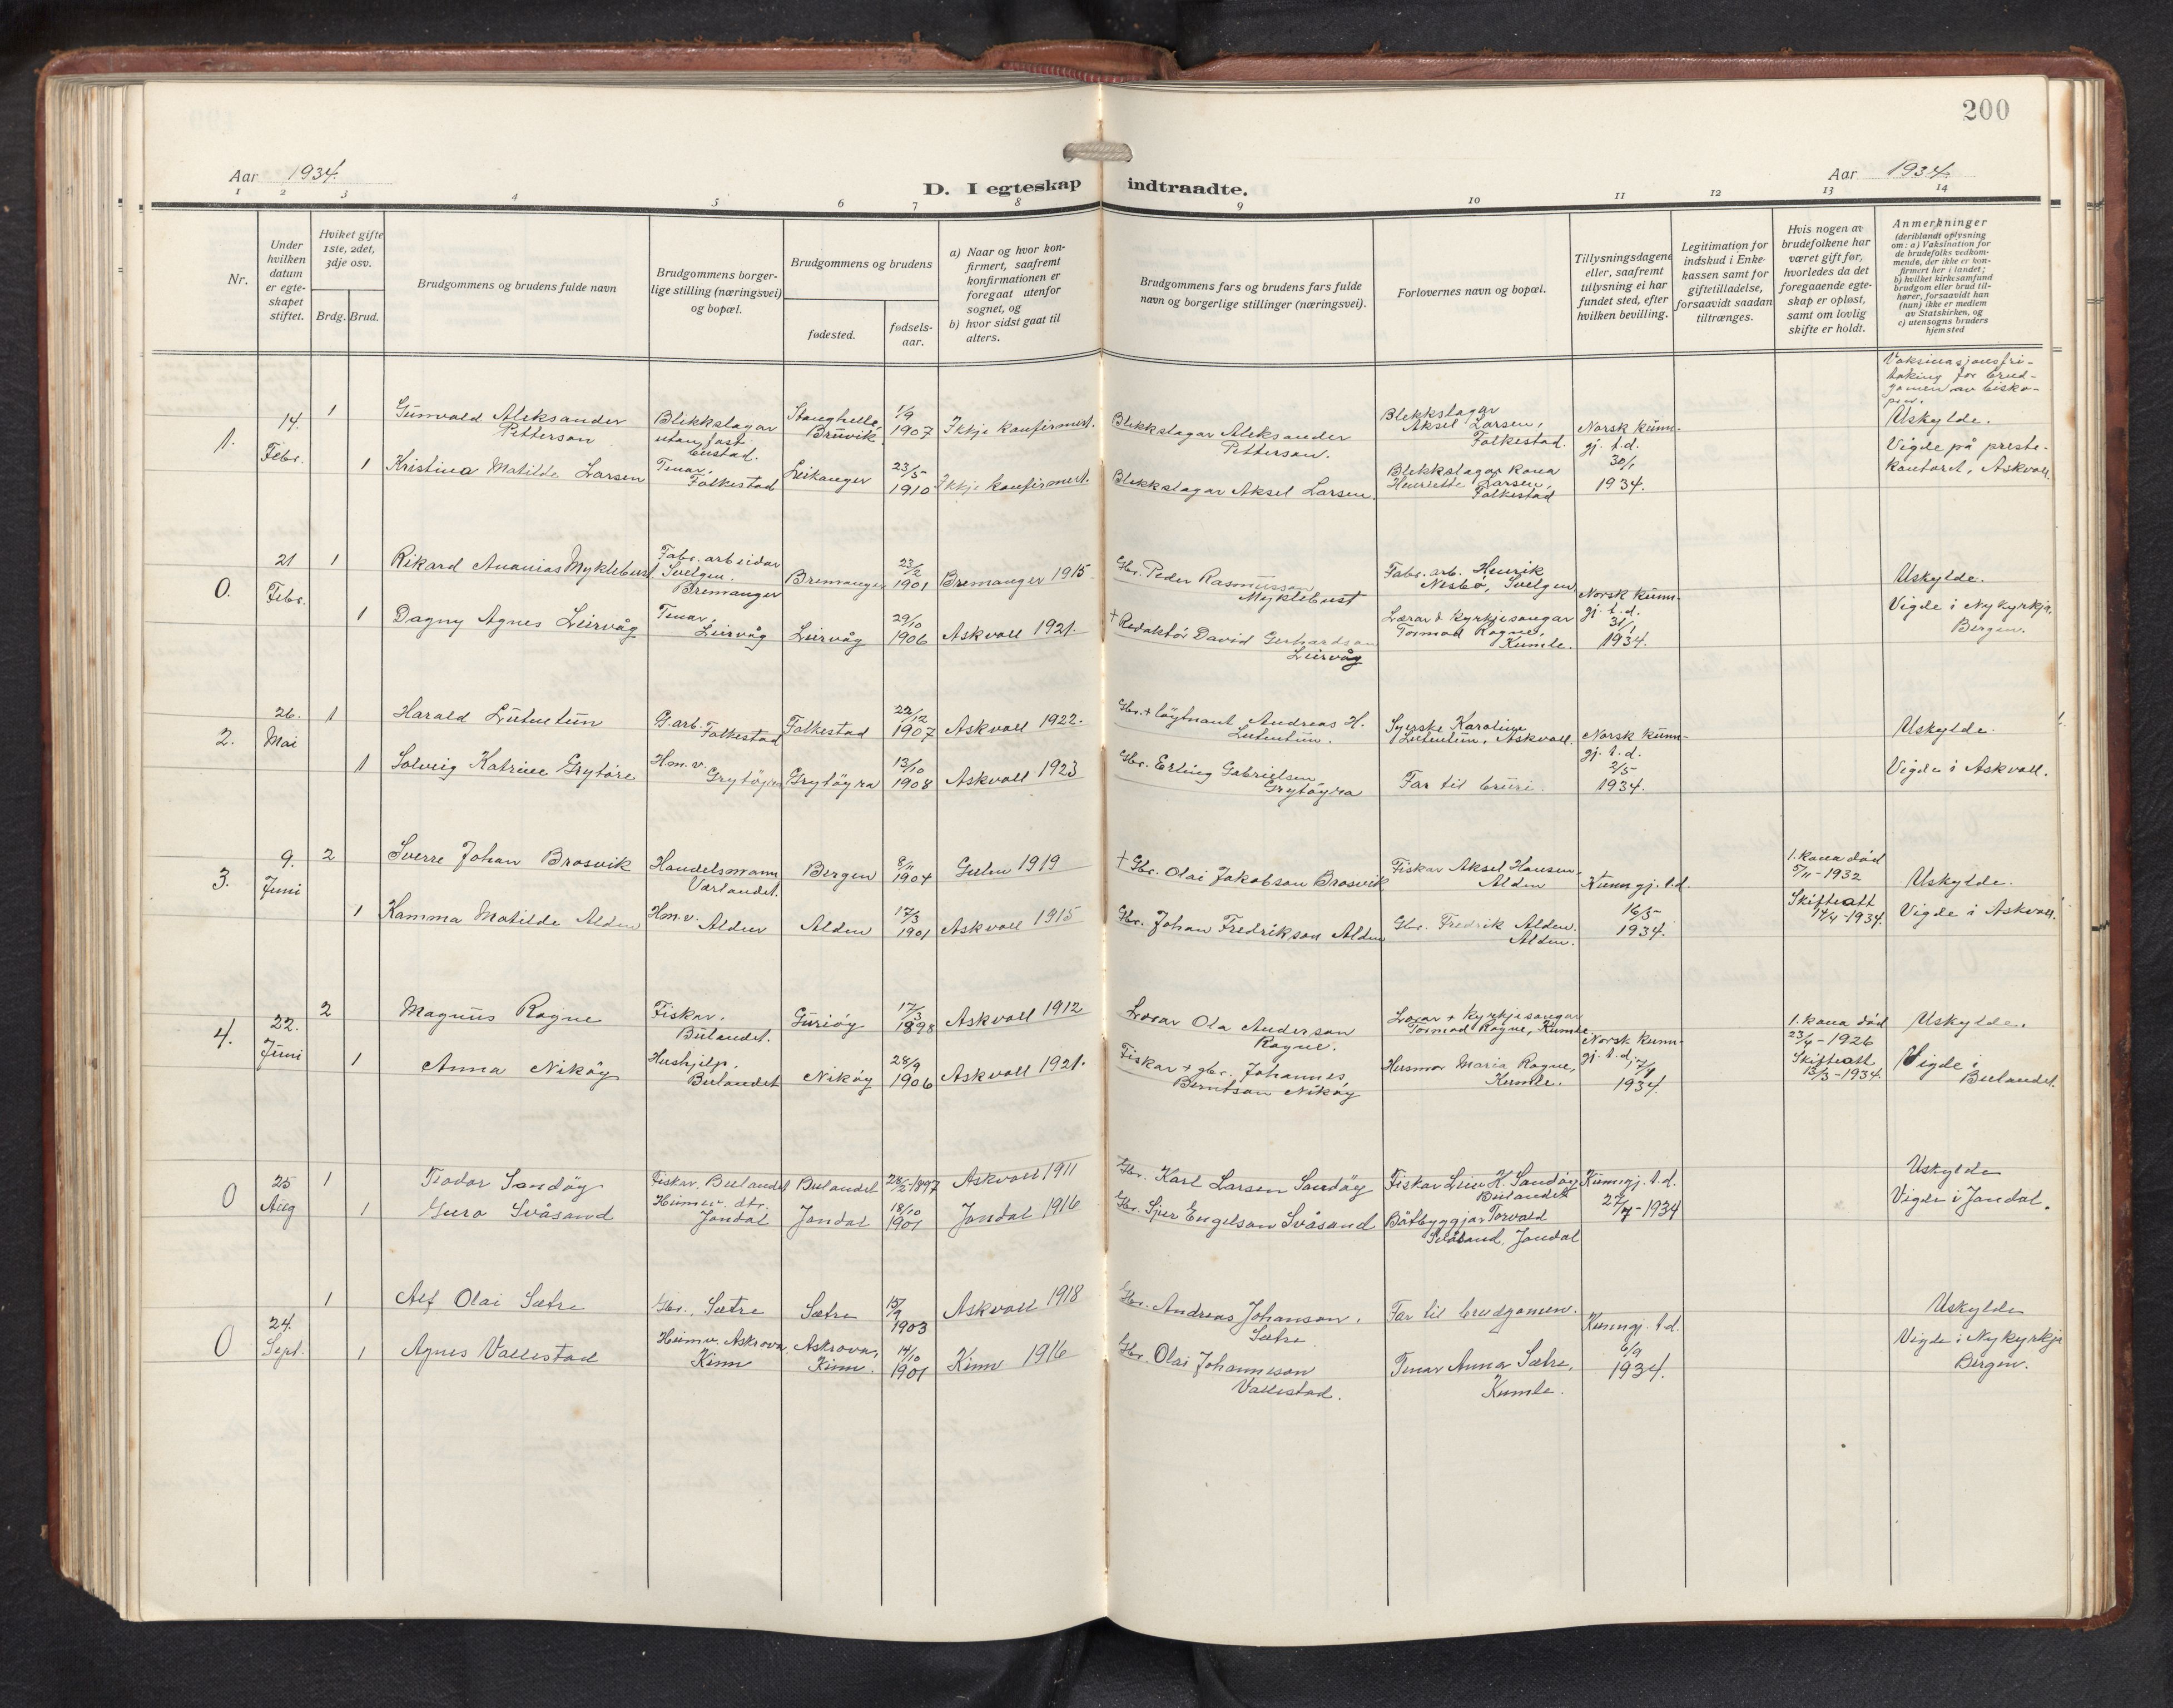 200
Aar 1934.
D. I egteskap indtraadte.
Aar 1934.
1 2 3 4 5 6 7 8 9 10 11 12 13 14
Nr.
Under hvilken datum er egteskapet stiftet.
Hvilket gifte 1ste, 2det, 3dje osv.
Brdg. Brud.
Brudgommens og brudens fulde navn
Brudgommens borgerlige stilling (næringsvei) og bopæl.
Brudgommens og brudens
fødested.
fødselsaar.
a) Naar og hvor konfirmert, saafremt konfirmationen er foregaat utenfor sognet, og
b) hvor sidst gaat til alters.
Brudgommens fars og brudens fars fulde navn og borgerlige stillinger (næringsvei).
Forlovernes navn og bopæl.
Tillysningsdagene eller, saafremt tillysning ei har fundet sted, efter hvilken bevilling.
Legitimation for indskud i Enkekassen samt for giftetilladelse, forsaavidt saadan tiltrænges.
Hvis nogen av brudefolkene har været gift før, hvorledes da det foregaaende egteskap er opløst, samt om lovlig skifte er holdt.
Anmerkninger
(deriblandt oplysning om: a) Vaksination for de brudefolks vedkommende, der ikke er konfirmert her i landet; b) hvilket kirkesamfund brudgom eller brud tilhører, forsaavidt han (hun) ikke er medlem av Statskirken, og c) utensogns bruders hjemsted
1. 14. Febr.
1 Gunvald Aleksander Petterson Blikkslagar utan fast bustad. Stanghelle, Bruvik 1/9 1907 Ikkje konfirmert. Blikkslagar Aleksander Petterson. Blekkslagar Aksel Larsen, Folkestad. Norsk kunngj. t.d. 30/1 1934.
Vaksinasjonsfritaking for brudgomen av biskopen.
Uskylde.
Vigde på prestekontoret, Askvoll.
1 Kristina Matilde Larsen Tenar, Folkestad Leikanger 23/5 1910 Ikkje konfirmert. Blekkslagar Aksel Larsen. Blekkslagar kona Henriette Larsen, Folkestad
0. 21 Febr.
1 Rikard Ananias Myklebust Fabr. arbeidar Svelgen, Bremanger Bremanger 23/2 1901 Bremanger 1915 Gbr. Peder Rasmusson Myklebust Fabr. arb. Henrik Nesbø, Svelgen Norsk kunngj. t.d. 31/1 1934. Uskylde.
Vigde i Nykyrkja, Bergen.
1 Dagny Agnes Leirvåg Tenar, Leirvåg Leirvåg 29/10 1906 Askvoll 1921. † Redaktør David Gerhardson Leirvåg Lærar & kyrkjesongar Tormod Rogne, Kumle.
2. 26. Mai
1 Harald Lutentun G.arb. Folkestad Folkestad 22/12 1907 Askvoll 1922. Gbr. + løytnant Andreas H. Lutentun. Syerske Karoline Lutentun, Askvoll. Norsk kunngj. t.d. 2/5 1934. Uskylde.
Vigde i Askvoll.
1 Solveig Katrine Grytøre Hm. v. Grytøyra Grytøyra 13/10 1908 Askvoll 1923 Gbr. Erling Gabrielsen, Grytøyra Far til bruri.
3. 9. Juni
2 Sverre Johan Brosvik Handelsmann Værlandet. Bergen 8/11 1904 Gulen 1919 † Gbr. Olai Jakobson Brosvik Fiskar Aksel Hansen, Alden Kunngj. t.d. 16/5 1934. 1. kona død 5/11 - 1932 Skifteatt. 14/4 - 1934. Uskylde.
Vigde i Askvoll.
1 Kamma Matilde Alden Hm. v. Alden Alden 17/3 1901 Askvoll 1915 Gbr. Johan Fredrikson Alden Gbr. Fredrik Alden. Alden.
4. 22. Juni
2 Magnus Rogne Fiskar, Bulandet. Guriøy 17/3 1898 Askvoll 1912 Lærar Ola Anderson Rogne. Lærar + kyrkjesongar Tormod Rogne, Kumle Norsk kunngj. t.d. 1934. 1. kona død 23/4 - 1926 Skifteatt. 13/3 - 1934. Uskylde.
Vigde i Bulandet.
1 Anna Nikøy Hushjelp, Bulandet Nikøy 28/9 1906 Askvoll 1921. Fiskar + gbr. Johannes Berntson Nikøy Husmor Maria Rogne, Kumle.
0 25 Aug
1 Teodor Sandøy Fiskar, Bulandet Bulandet 28/2 1897 Askvoll 1911 Gbr. Karl Larsen Sandøy Fiskar Leiv K. Sandøy Bulandet Kunngj. t.d. 27/7 - 1934 Uskylde
Vigde i Jondal.
1 Guro Svåsand Heimev. dtr. Jondal Jondal 18/10 1901 Jondal 1916 Gbr. Sjur Engelson Svåsand Båtbyggjar Torvald Svåsand, Jondal
0 24. Sept.
1 Alf Olai Sætre Gbr. Sætre Sætre 15/9 1903 Askvoll 1918 Gbr. Andreas Johanson, Sætre Far til brudgomen. Kunngj. t.d. 6/9 1934. Uskylde
Vigde i Nykyrkja Bergen.
1 Agnes Vallestad Heimv. Askrova, Kinn Askrova, Kinn. 14/10 1901 Kinn 1916 Gbr. Olai Johanneson Vallestad. Tenar Anna Sætre, Kumle.